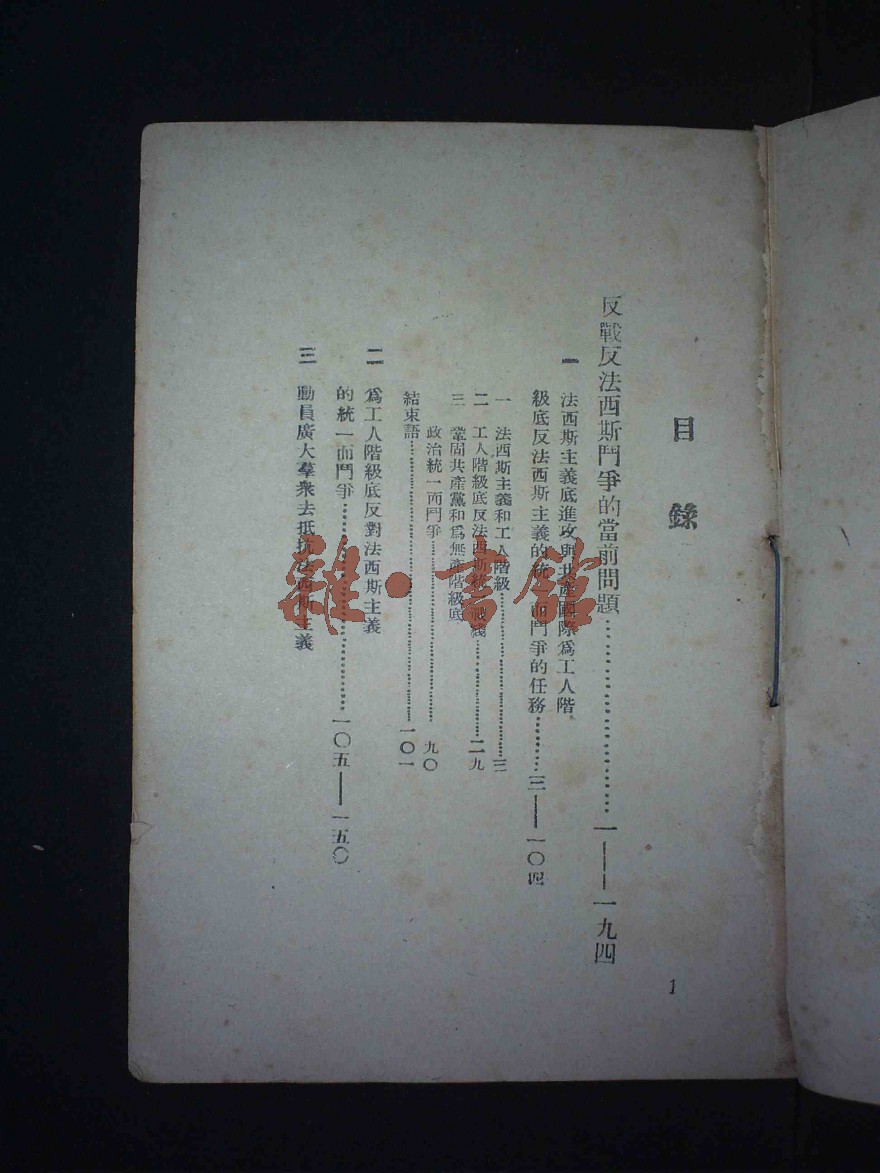 目錄
反戰反法西斯鬥爭的當前問題……一——一九四
一 法西斯主義底進攻與共產國際爲工人階
級底反法西斯主義的統一而鬥爭的任務……三——一〇四
一 法西斯主義和工人階級……三
二 工人階級底反法西斯統一戰綫……二九
三 鞏固共產黨和爲無產階級底
政治統一而鬥爭……九〇
結束語……一〇一
二 爲工人階級底反對法西斯主義
的統一而鬥爭……一〇五——一五〇
三 動員廣大羣衆去抵抗法西斯主義
1
雜·書館